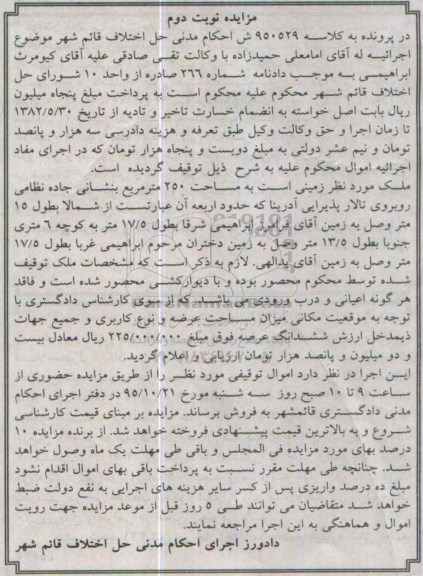 مزایده نوبت دوم
در پرونده به کلاسه ۹۵۰۵۲۹ ش احکام مدنی حل اختلاف قائم شهر موضوع
اجرائیه له آقای امامعلی حمیدزاده با وکالت تقی صادقی علیه آقای کیومرث
ابراهیمی به موجب دادنامه شماره ۲۶۶ صادره از واحد ۱۰ شورای حل
اختلاف قائم شهر محکوم علیه محکوم است به پرداخت مبلغ پنجاه میلیون
ریال بابت اصل خواسته به انضمام خسارت تاخیر و تادیه از تاریخ ۱۳۸۲/۵/۳۰
تا زمان اجرا و حق وکالت وکیل طبق تعرفه و هزینه دادرسی سه هزار و پانصد
تومان و نیم عشر دولتی به مبلغ دویست و پنجاه هزار تومان که در اجرای مفاد
اجرائیه اموال محکوم علیه به شرح ذیل توقیف گردیده است.
ملک مورد نظر زمینی است به مساحت ۲۵۰ مترمربع بنشانی جاده نظامی
روبروی تالار پذیرایی آدرینا که حدود اربعه آن عبارتست از شمالا بطول ۱۵
متر وصل به زمین آقای فرامرز ابراهیمی شرقا بطول ۱۷/۵ متر به کوچه ۶ متری
جنوبا بطول ۱۳/۵ متر وصل به زمین دختران مرحوم ابراهیمی غربا بطول ۱۷/۵
متر وصل به زمین آقای یدالهی. لازم به ذکر است که مشخصات ملک توقیف
شده توسط محکوم محصور بوده و با دیوارکشی محصور شده است و فاقد
هر گونه اعیانی و درب ورودی می باشد که از سوی کارشناس دادگستری با
توجه به موقعیت مکانی میزان مساحت عرصه و نوع کاربری و جمیع جهات
ذیمدخل ارزش ششدانگ عرصه فوق مبلغ ۲۲۵/۰۰۰/۰۰۰ ریال معادل بیست
و دو میلیون و پانصد هزار تومان ارزیابی و اعلام گردید.
ایـن اجرا در نظر دارد اموال توقیفی مورد نظر را از طریق مزایده حضوری از
ساعت ۹ تا ۱۰ صبح روز سه شنبه مورخ ۹۵/۱۰/۲۱ در دفتر اجرای احکام
مدنی دادگستری قائمشهر به فروش برساند. مزایده بر مبنای قیمت کارشناسی
شروع و به بالاترین قیمت پیشنهادی فروخته خواهد شد. از برنده مزایده ۱۰
درصد بهای مورد مزایده فی المجلس و باقی طی مهلت یک ماه وصول خواهد
شد. چنانچه طی مهلت مقرر نسبت به پرداخت باقی بهای اموال اقدام نشود
مبلغ ده درصد واریزی پس از کسر سایر هزینه های اجرایی به نفع دولت ضبط
خواهد شد متقاضیان می توانند طی ۵ روز قبل از موعد مزایده جهت رویت
اموال و هماهنگی به این اجرا مراجعه نمایند.
دادورز اجرای احکام مدنی حل اختلاف قائم شهر